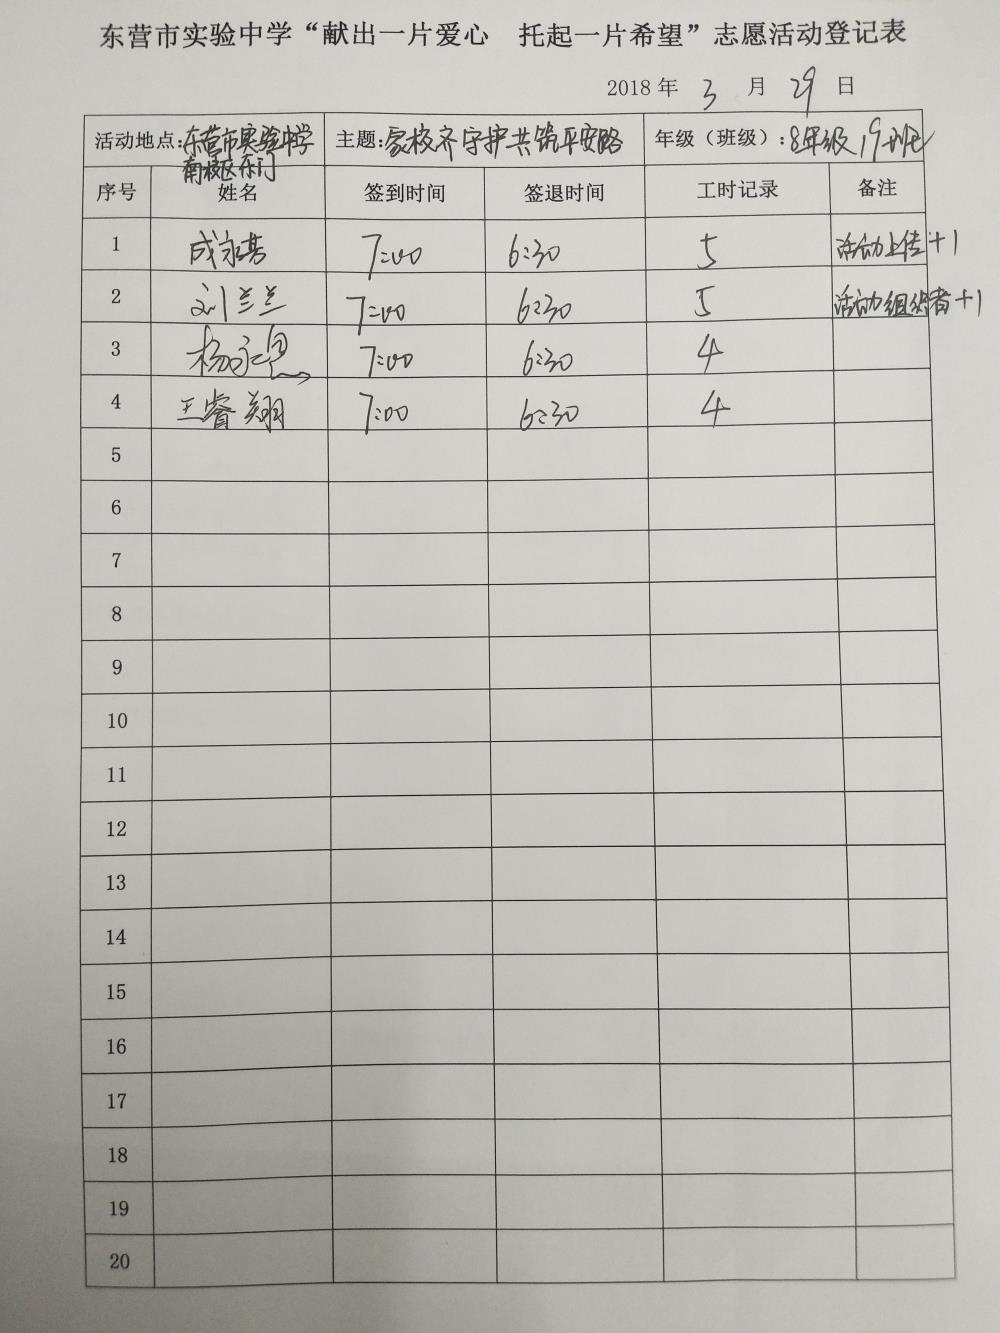 东营市实验中学“献出一片爱心 托起一片希望”志愿活动登记表
2018 年 3 月 29 日
活动地点:东营市实验中学南校区东门 主题:家校齐守护共筑平安路 年级（班级）:8年级19班
序号 姓名 签到时间 签退时间 工时记录 备注
1 成 7:00 6:30 5 活动上传+1
2 刘兰兰 7:00 6:30 5 活动组织者+1
3 杨 7:00 6:30 4
4 王睿翔 7:00 6:30 4
5
6
7
8
9
10
11
12
13
14
15
16
17
18
19
20